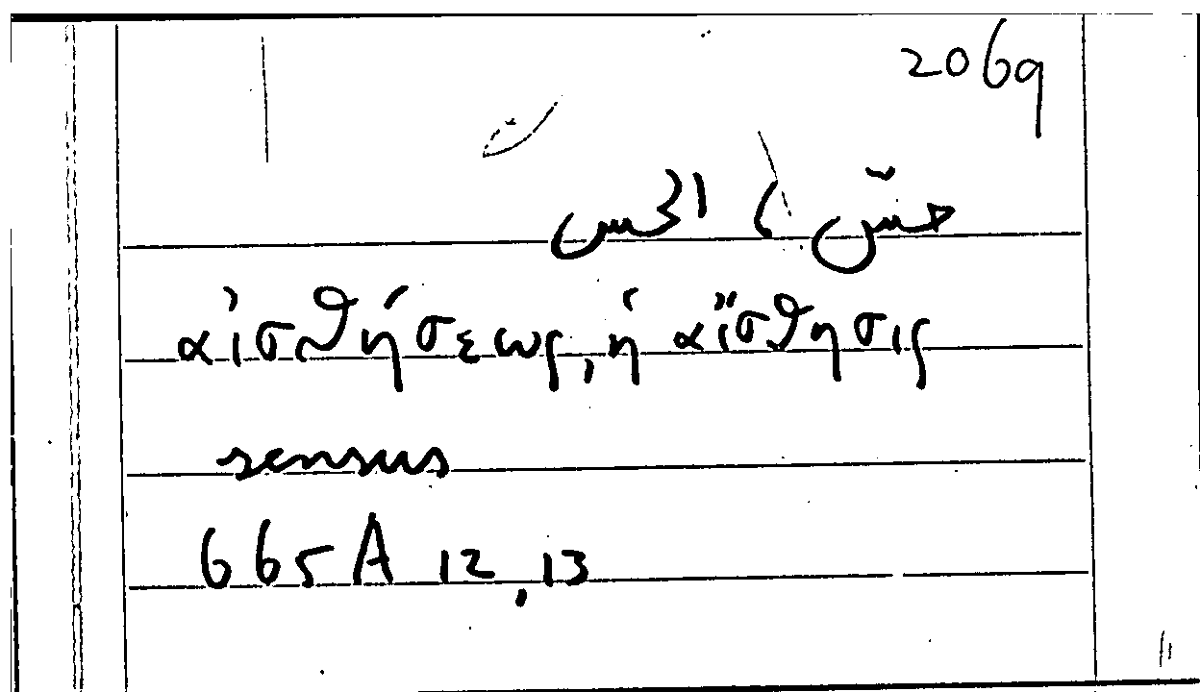 2069
حسّ ، الحس
αἰσθήσεως, ἡ αἴσθησις
sensus
665A 12, 13